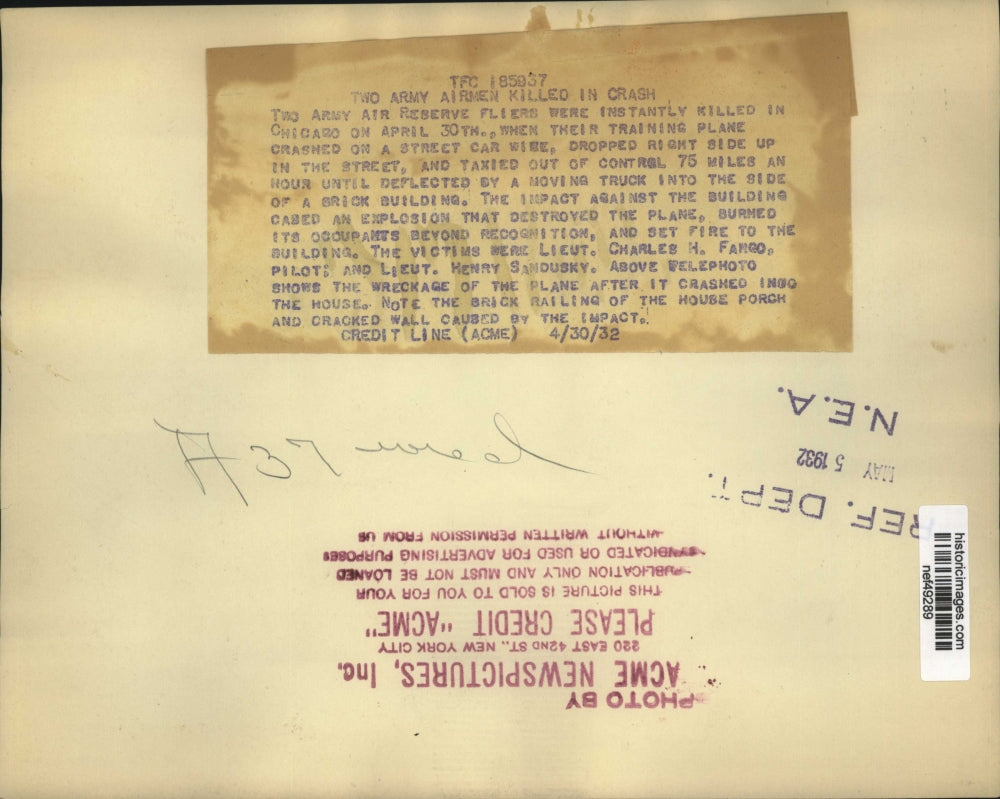 TFC 185937
TWO ARMY AIRMEN KILLED IN CRASH
TWO ARMY AIR RESERVE FLIERS WERE INSTANTLY KILLED IN
CHICAGO ON APRIL 30TH., WHEN THEIR TRAINING PLANE
CRASHED ON A STREET CAR WIRE, DROPPED RIGHT SIDE UP
IN THE STREET, AND TAXIED OUT OF CONTROL 75 MILES AN
HOUR UNTIL DEFLECTED BY A MOVING TRUCK INTO THE SIDE
OF A BRICK BUILDING. THE IMPACT AGAINST THE BUILDING
CASED AN EXPLOSION THAT DESTROYED THE PLANE, BURNED
ITS OCCUPANTS BEYOND RECOGNITION, AND SET FIRE TO THE
BUILDING. THE VICTIMS WERE LIEUT. CHARLES H. FARGO,
PILOT; AND LIEUT. HENRY SANDUSKY. ABOVE TELEPHOTO
SHOWS THE WRECKAGE OF THE PLANE AFTER IT CRASHED INTO
THE HOUSE. NOTE THE BRICK RAILING OF THE HOUSE PORCH
AND CRACKED WALL CAUSED BY THE IMPACT.
CREDIT LINE (ACME) 4/30/32
N.E.A.
MAY 5 1932
REF. DEPT.
A 37
PHOTO BY
ACME NEWSPICTURES, Inc.
220 EAST 42ND ST., NEW YORK CITY
PLEASE CREDIT "ACME"
THIS PICTURE IS SOLD TO YOU FOR YOUR
PUBLICATION ONLY AND MUST NOT BE LOANED
SYNDICATED OR USED FOR ADVERTISING PURPOSES
WITHOUT WRITTEN PERMISSION FROM US
historicimages.com
nef49289